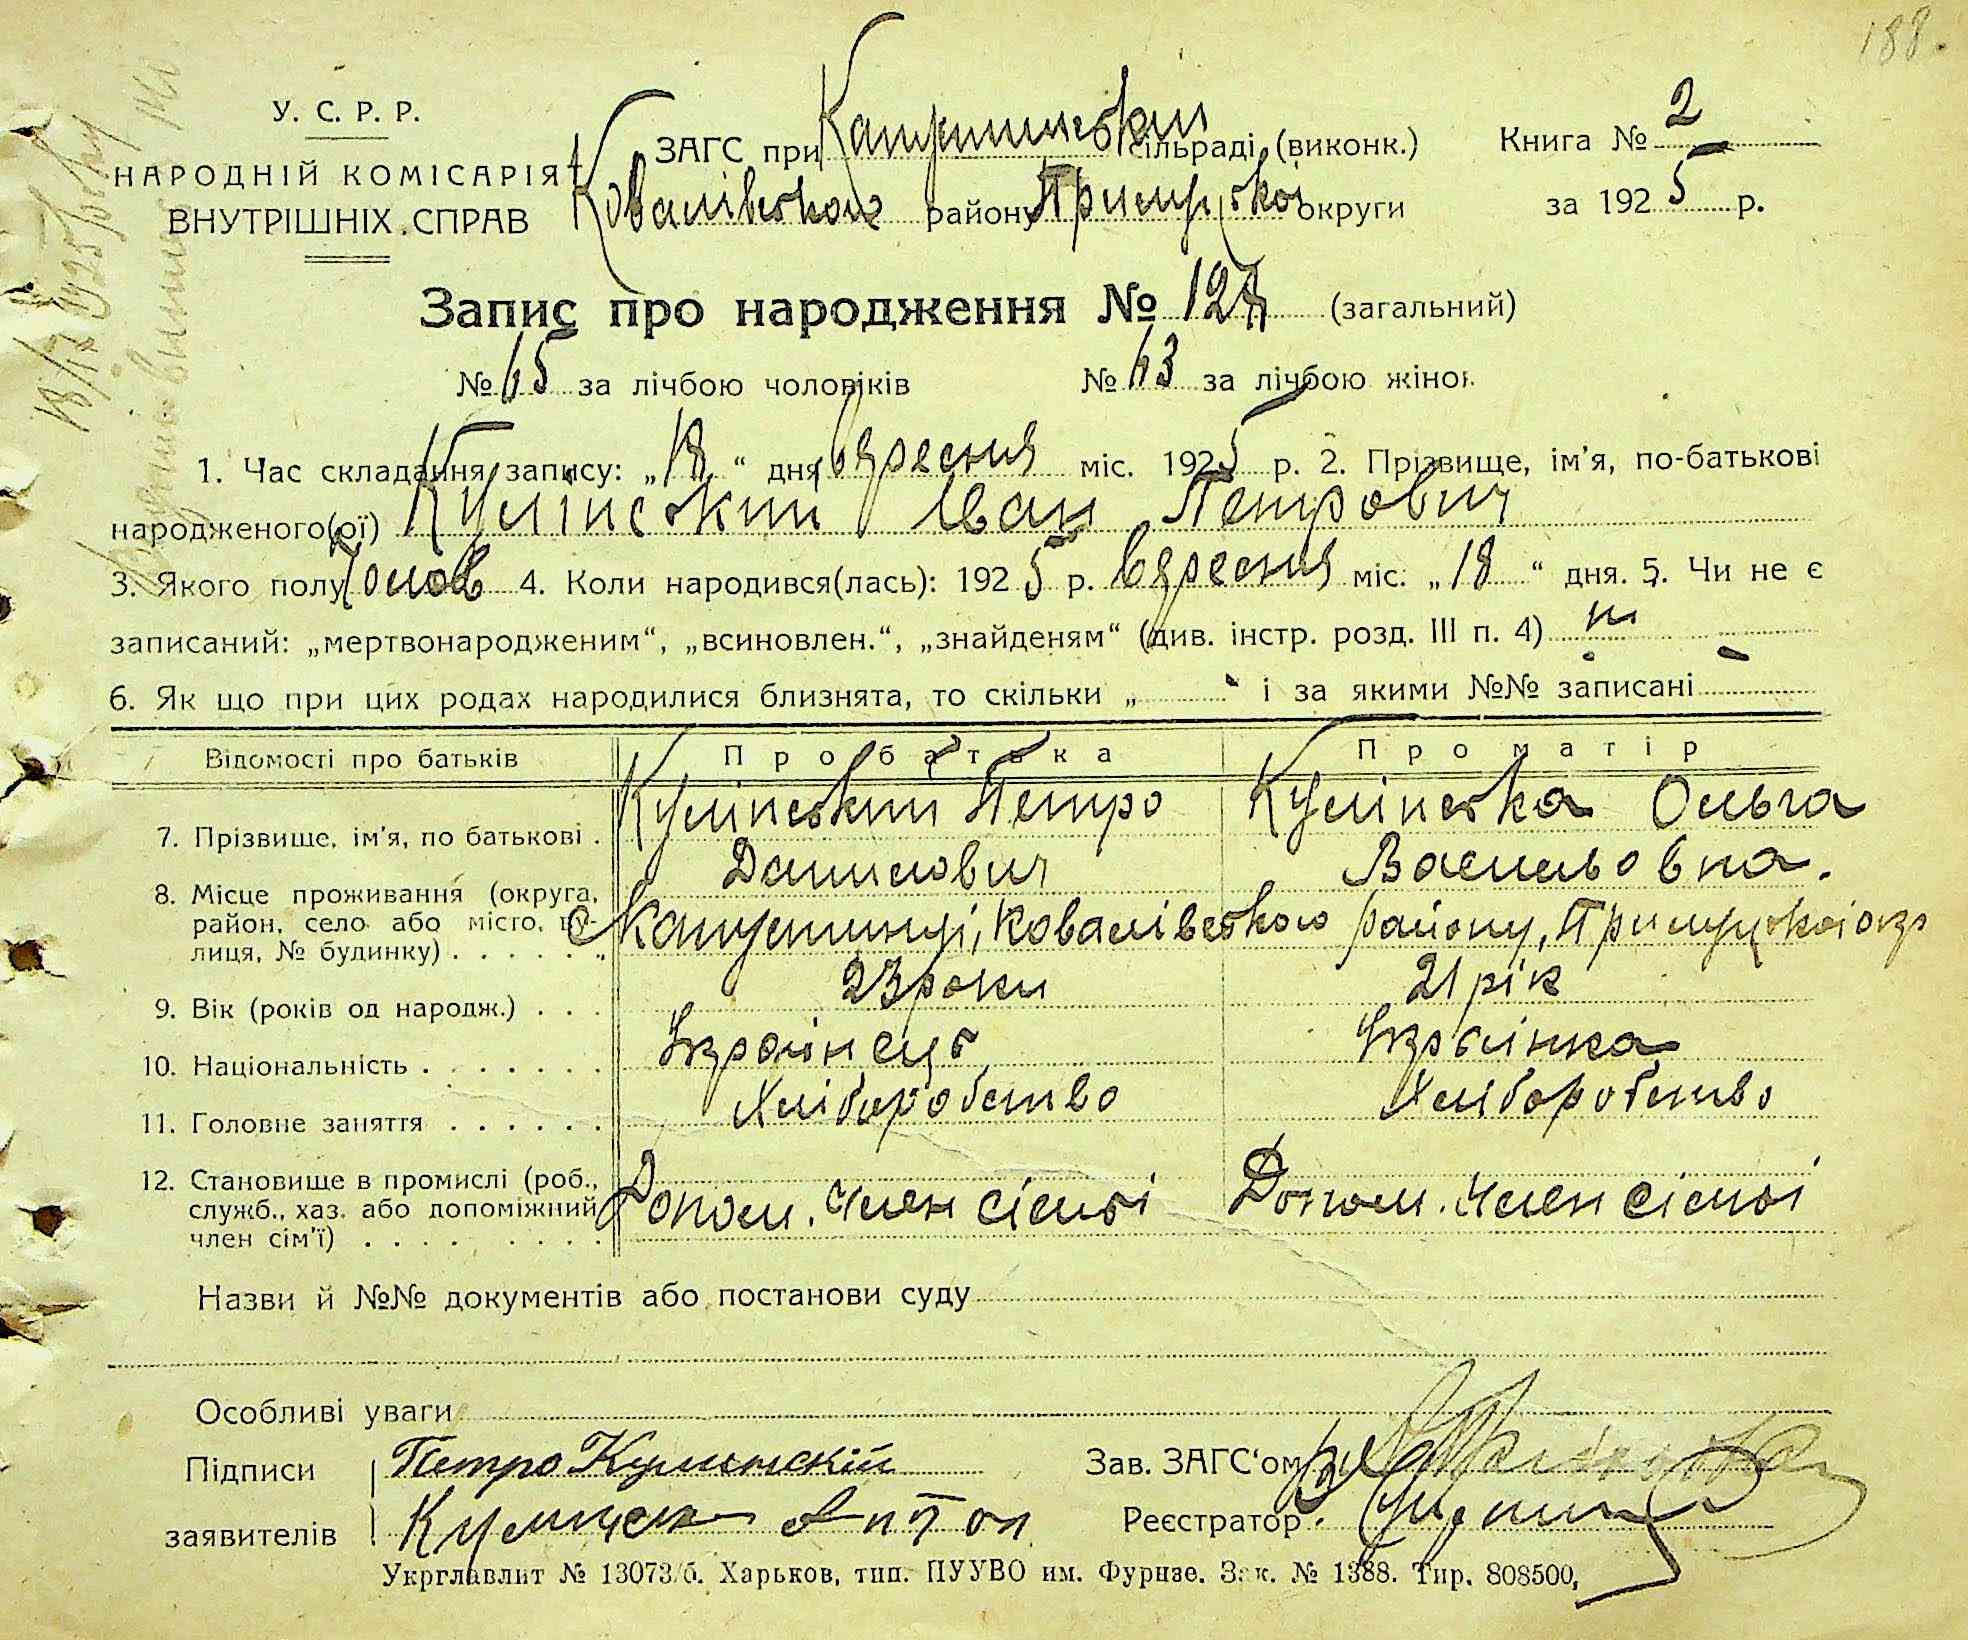 188.
У. С. Р. Р.
НАРОДНІЙ КОМІСАРІЯТ
ВНУТРІШНІХ СПРАВ
ЗАГС при Капустинській сільраді (виконк.)
Ковалівського району Прилуцької округи
Книга № 2
за 1925 р.
Запис про народження № 128 (загальний)
№ 65 за лічбою чоловіків № 63 за лічбою жінок
1. Час складання запису: „18“ дня вересня міс. 1925 р. 2. Прізвище, ім’я, по-батькові
народженого(ої) Кулінский Іван Петрович
3. Якого полу Чолов 4. Коли народився(лась): 1925 р. вересня міс. „18“ дня. 5. Чи не є
записаний: „мертвонародженим“, „всиновлен.“, „знайденям“ (див. інстр. розд. III п. 4)
6. Як що при цих родах народилися близнята, то скільки „ “ і за якими №№ записані
Відомості про батьків Про батька Про матір
7. Прізвище, ім’я, по батькові . Кулінский Петро Данилович Кулінська Ольга Васильовна.
8. Місце проживання (округа, район, село або місто, вулиця, № будинку) . . . . . . „ с Капустинці, Ковалівського району, Прилуцкої окр
9. Вік (років од народж.) . . . 23 роки 21 рік
10. Національність . . . . . . . Українець Українка
11. Головне заняття . . . . . . Хліборобство Хліборобство
12. Становище в промислі (роб., служб., хаз. або допоміжний член сім’ї) . . . . . . . . Допом. член сімьі Допом. член сімьі
Назви й №№ документів або постанови суду
Особливі уваги
Підписи Петро Кулинскій
заявителів Антон
Зав. ЗАГС‘ом
Реєстратор
Укрглавлит № 13073/б. Харьков, тип. ПУУВО им. Фрунзе. Зак. № 1388. Тир. 808500,